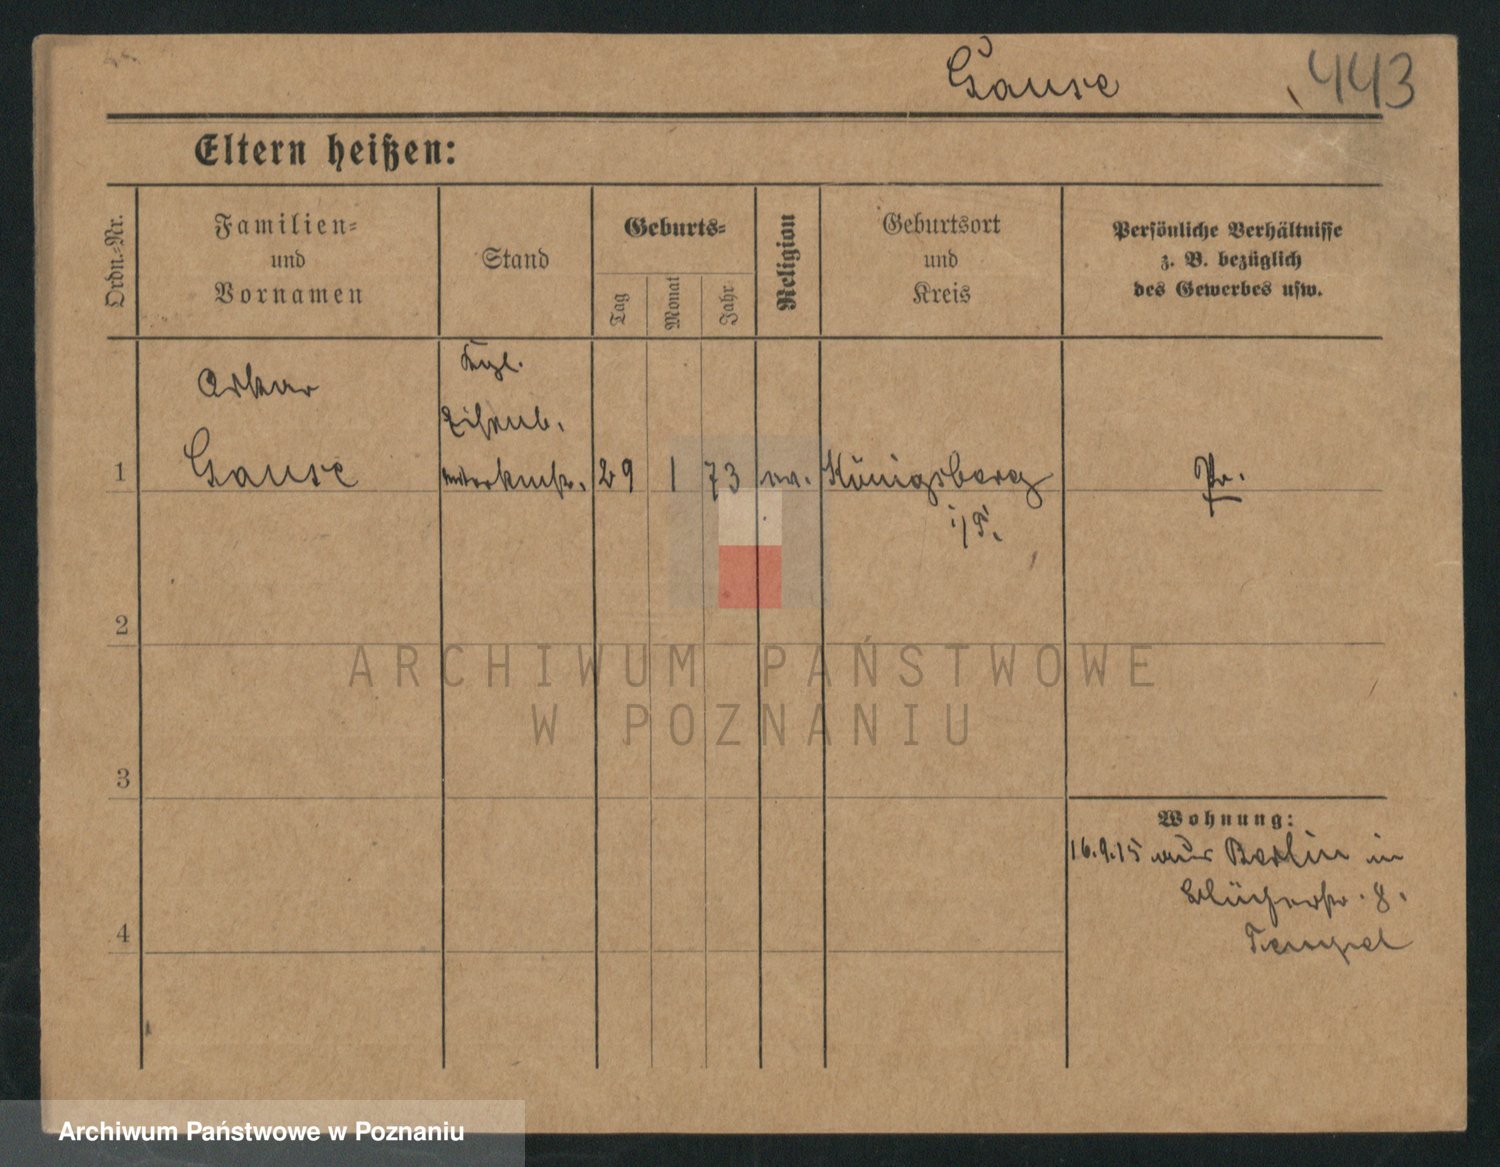 Gause
443
Eltern heißen:
Ordn.-Nr.
Familien-
und
Vornamen
Stand
Geburts-
Tag
Monat
Jahr
Religion
Geburtsort
und
Kreis
Persönliche Verhältnisse
z. B. bezüglich
des Gewerbes usw.
1
Oskar
Gause
Kgl.
Eisenb.
29
1
73
ev.
Königsberg
i/P.
Pr.
2
3
4
Wohnung:
16.9.15 aus Berlin in
Blücherstr. 8.
Tempel
ARCHIWUM PAŃSTWOWE
W POZNANIU
Archiwum Państwowe w Poznaniu